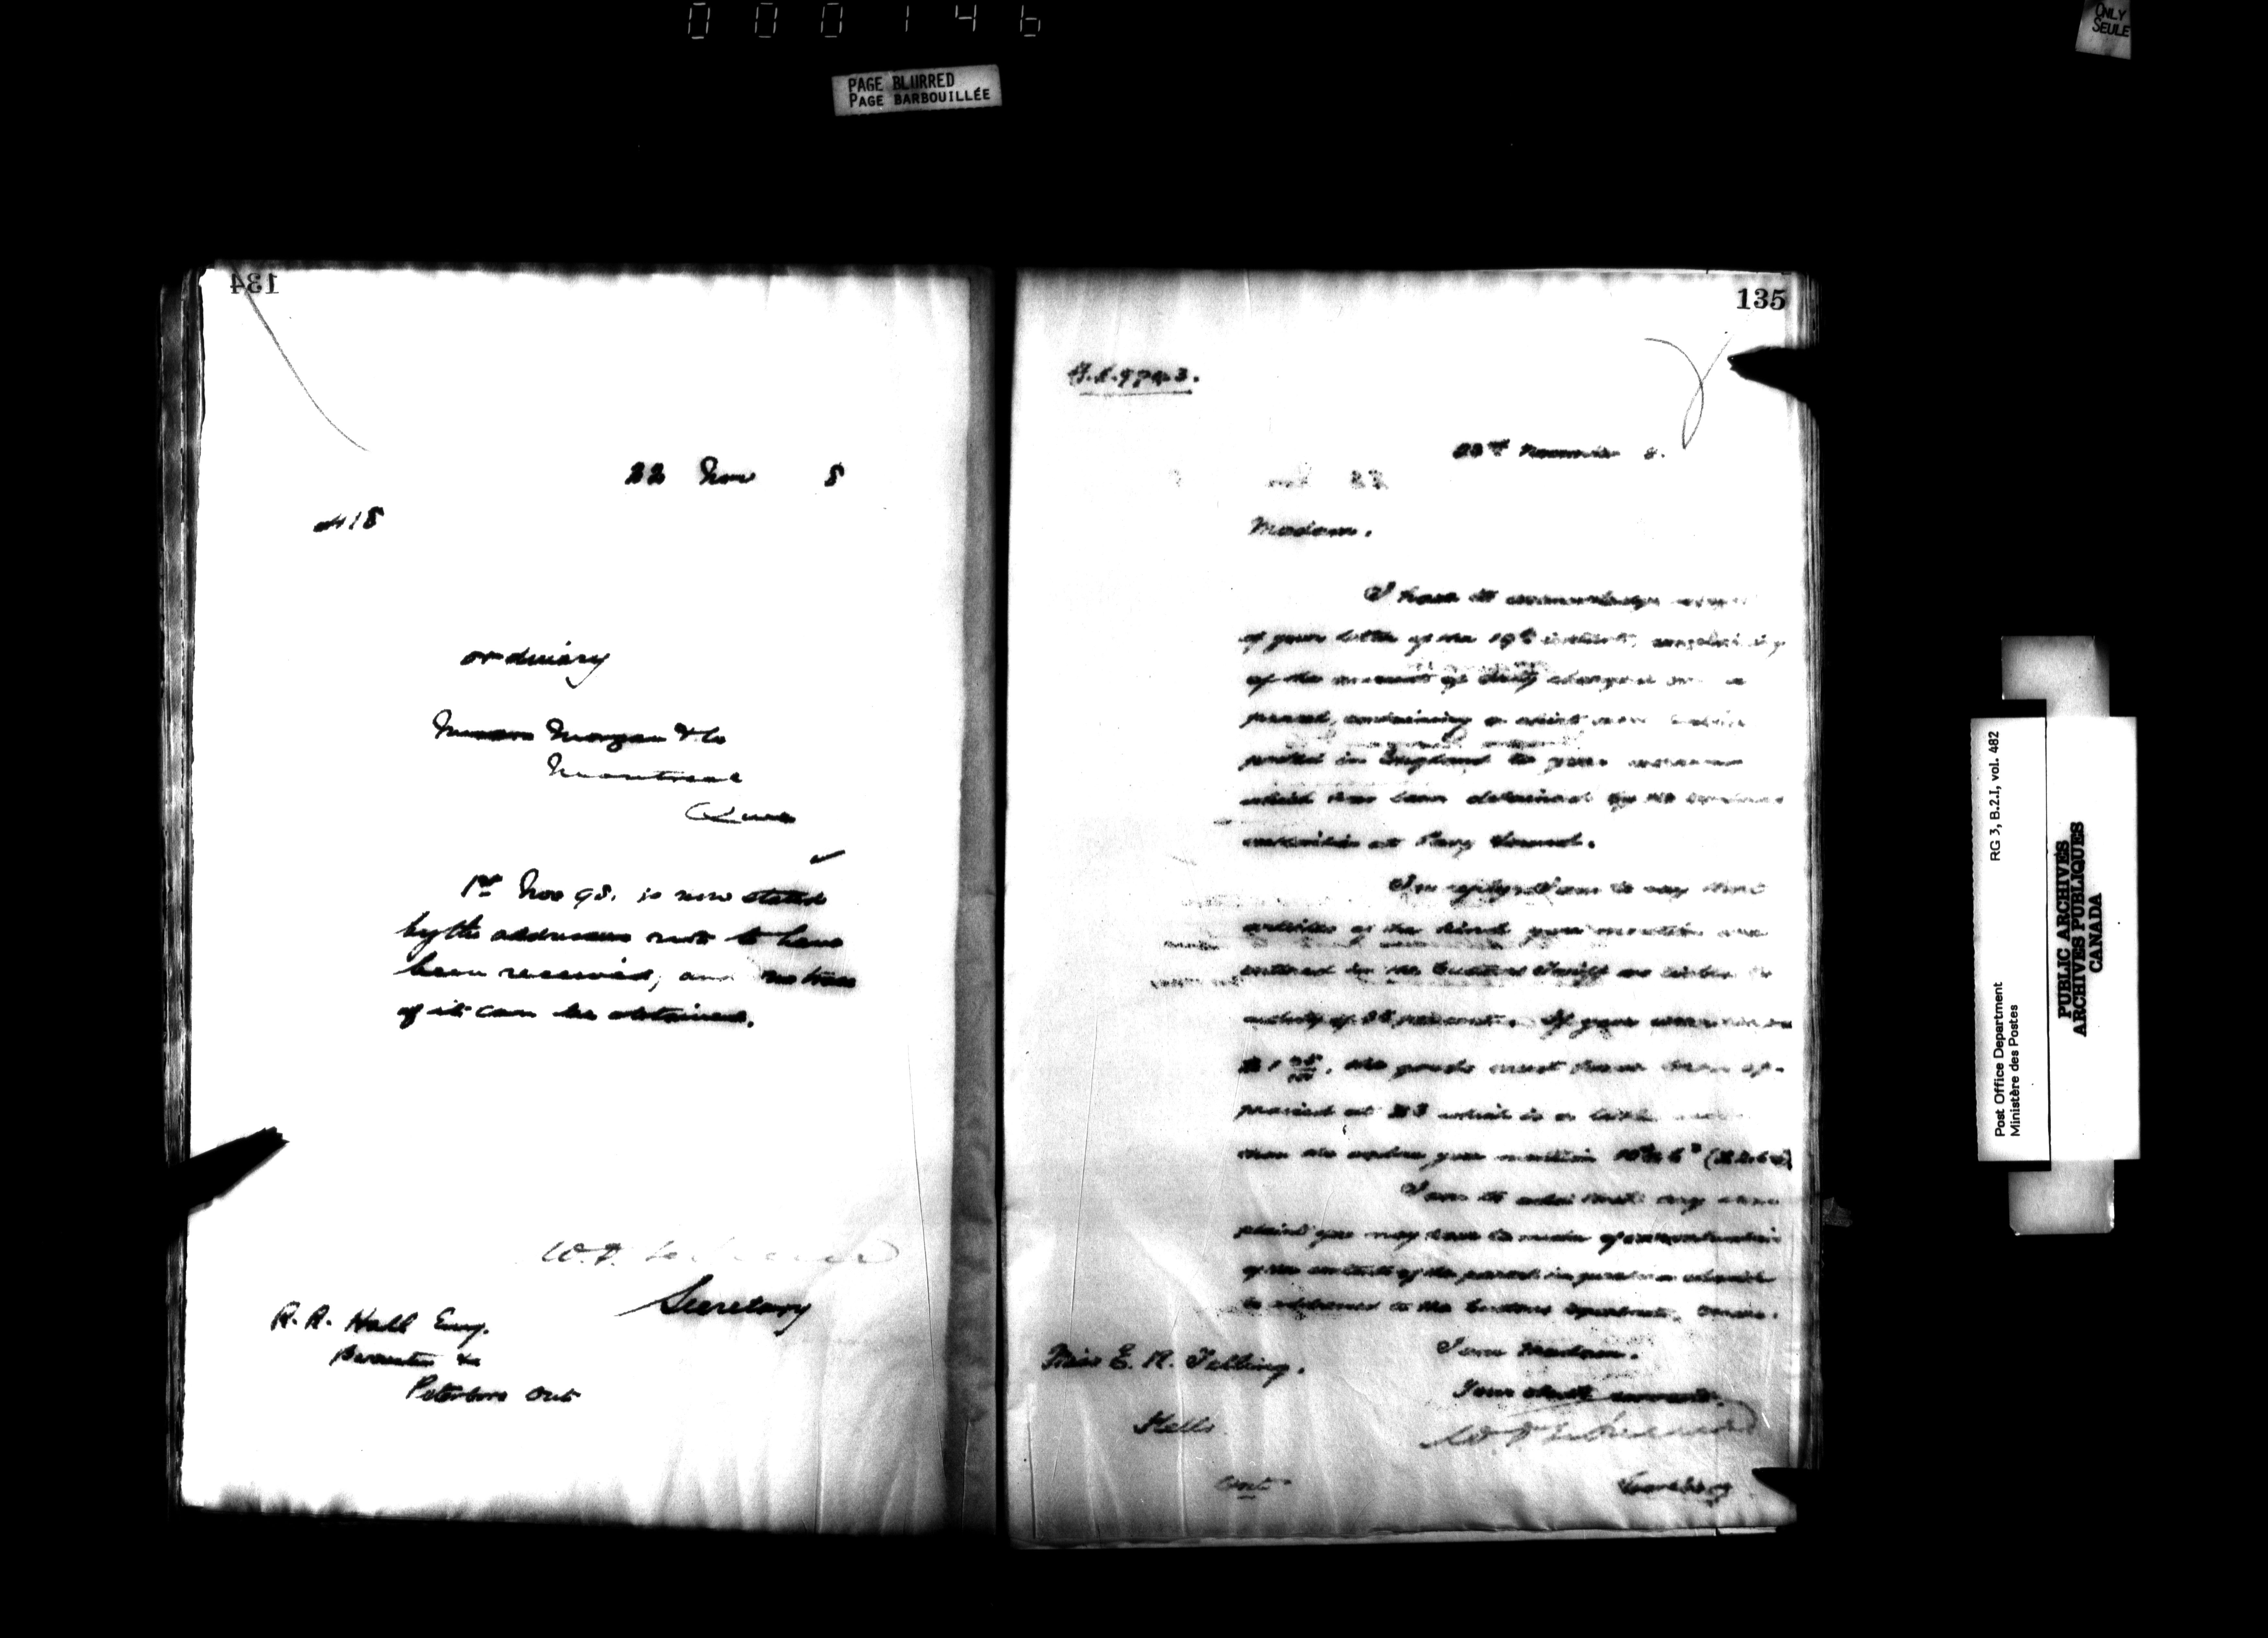 000146
PAGE BLURRED
PAGE BARBOUILLÉE
ONLY
SEULE
134
22 Nov 8
418
ordinary
Messrs Morgan & Co
Montreal
Que
1st Nov 98. is now stated
by the addressees not to have
been received, and no trace
of it can be obtained.
Secretary
R. R. Hall Esq.
Barrister &c
Peterboro Ont
135
22nd November 8.
Madam.
I have to acknowledge
of your letter of the 19th instant, complaining
of the amount of duty charged on a
parcel, containing a
posted in England to your
which has been detained by the Customs
authorities at Parry Sound.
In reply I am to say that
articles of the kind you mention are
entered in the Customs Tariff as liable to
a duty of 35 per cent. If your
$1 05/100, the goods must have been ap-
praised at $3 which is a little more
than the value you mention
I am to add that any com-
plaint you may have to make of overvaluation
of the contents of the parcel in question should
be addressed to the Customs Department, Ottawa.
I am Madam.
Your obedt servant.
Miss E. R. Tebbing.
Kells
Ont
Secretary
Post Office Department
Ministère des Postes
RG 3, B.2.I, vol. 482
PUBLIC ARCHIVES
ARCHIVES PUBLIQUES
CANADA